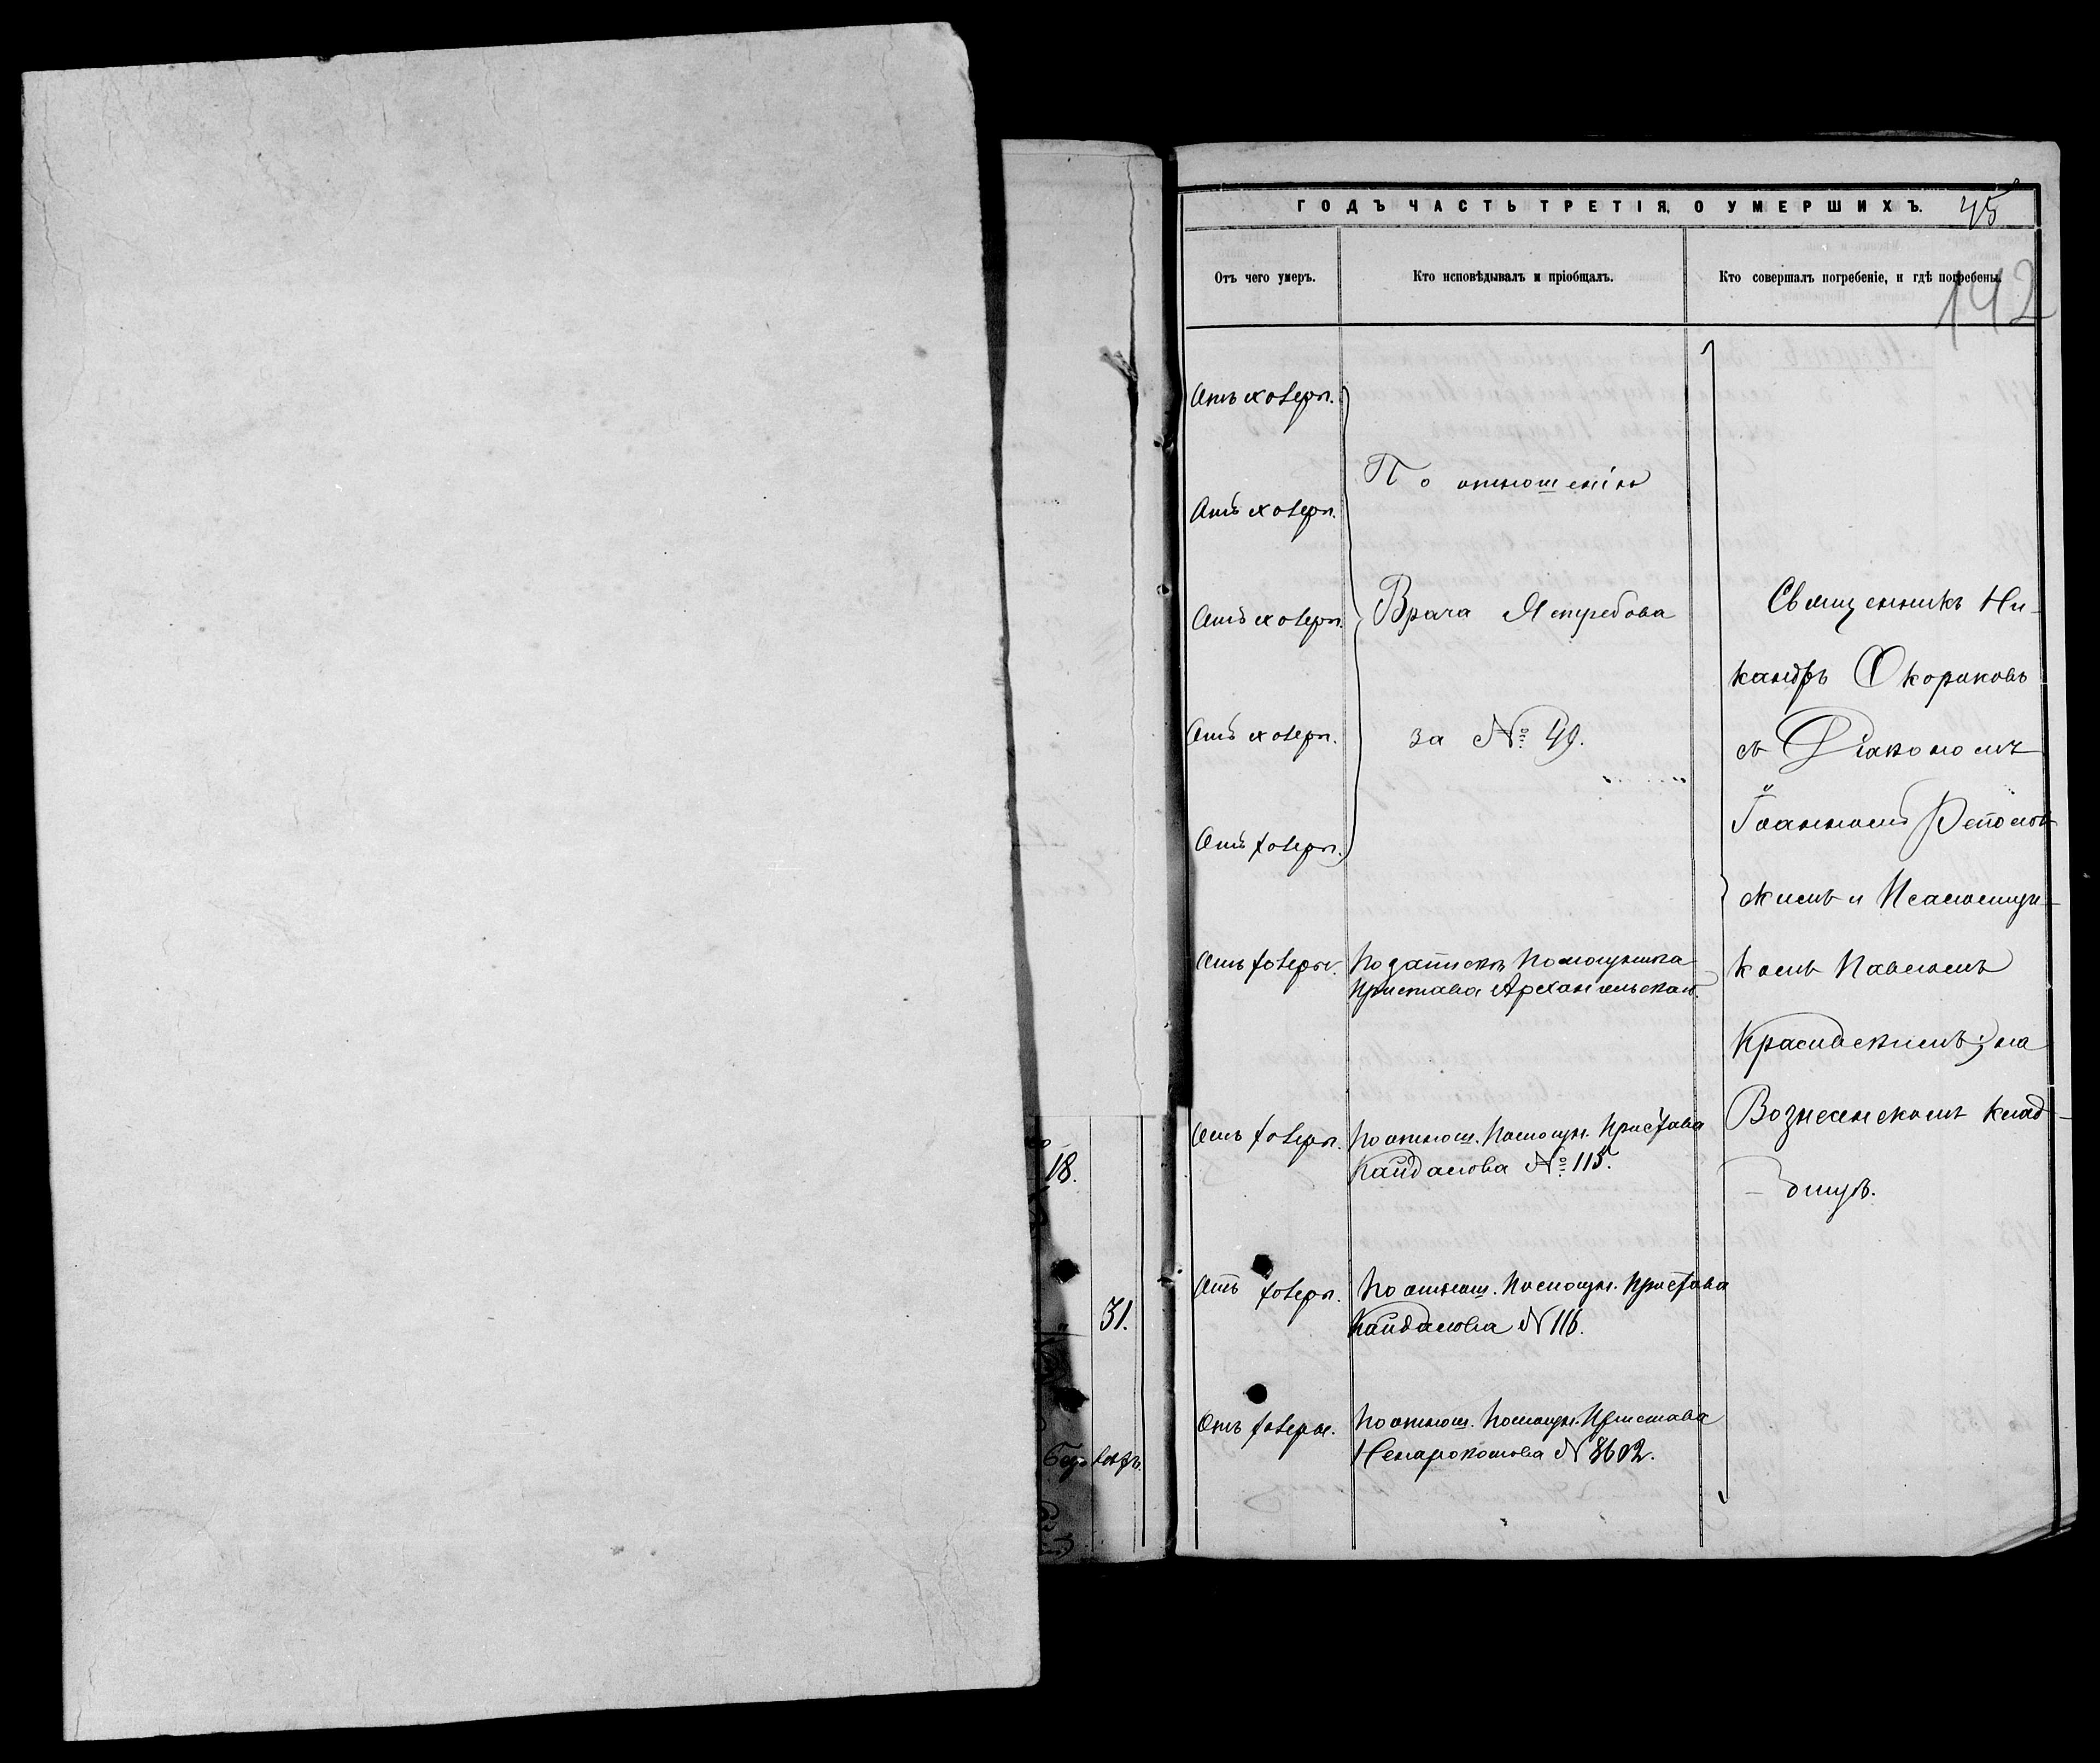 ГОДЪ ЧАСТЬ ТРЕТІЯ, О УМЕРШИХЪ.
45
Отъ чего умеръ.
Кто исповѣдывалъ и пріобщалъ.
Кто совершалъ погребеніе, и гдѣ погребены.
142
Отъ холеры.
Отъ холеры.
Отъ холеры.
Отъ холеры.
Отъ холеры.
По отношенію
Врача Ястребова
за № 49.
Отъ холеры.
По запискѣ Помощника
Пристава Архангельскаго.
Отъ холеры.
По отнош. Помощн. Пристава
Кайдалова № 115.
Отъ холеры.
По отнош. Помощн. Пристава
Кайдалова N 116.
Отъ холеры.
По отнош. Помощн. Пристава
Ненарокомова N 8602.
Священникъ Ни-
кандръ Скориковъ
съ Діакономъ
Іоанномъ
и Псаломщи-
комъ Павломъ
на
Вознесенскомъ клад-
бищѣ.
18.
31.